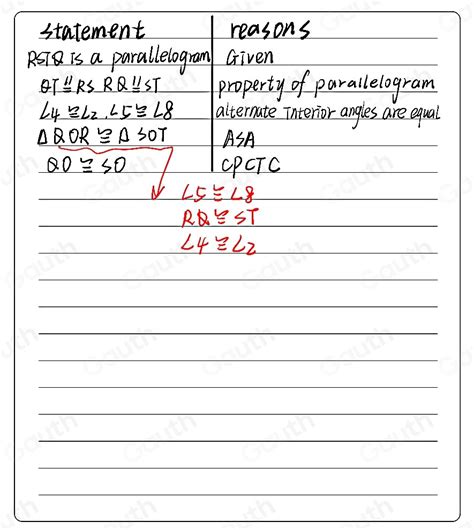 statement reasons
RSTQ is a parallelogram Given
QT ∥ RS RQ ∥ ST property of parallelogram
∠4 ≅ ∠2, ∠5 ≅ ∠8 alternate Interior angles are equal
△ QOR ≅ △ SOT ASA
QO ≅ SO CPCTC
∠5 ≅ ∠8
RQ ≅ ST
∠4 ≅ ∠2
Gauth